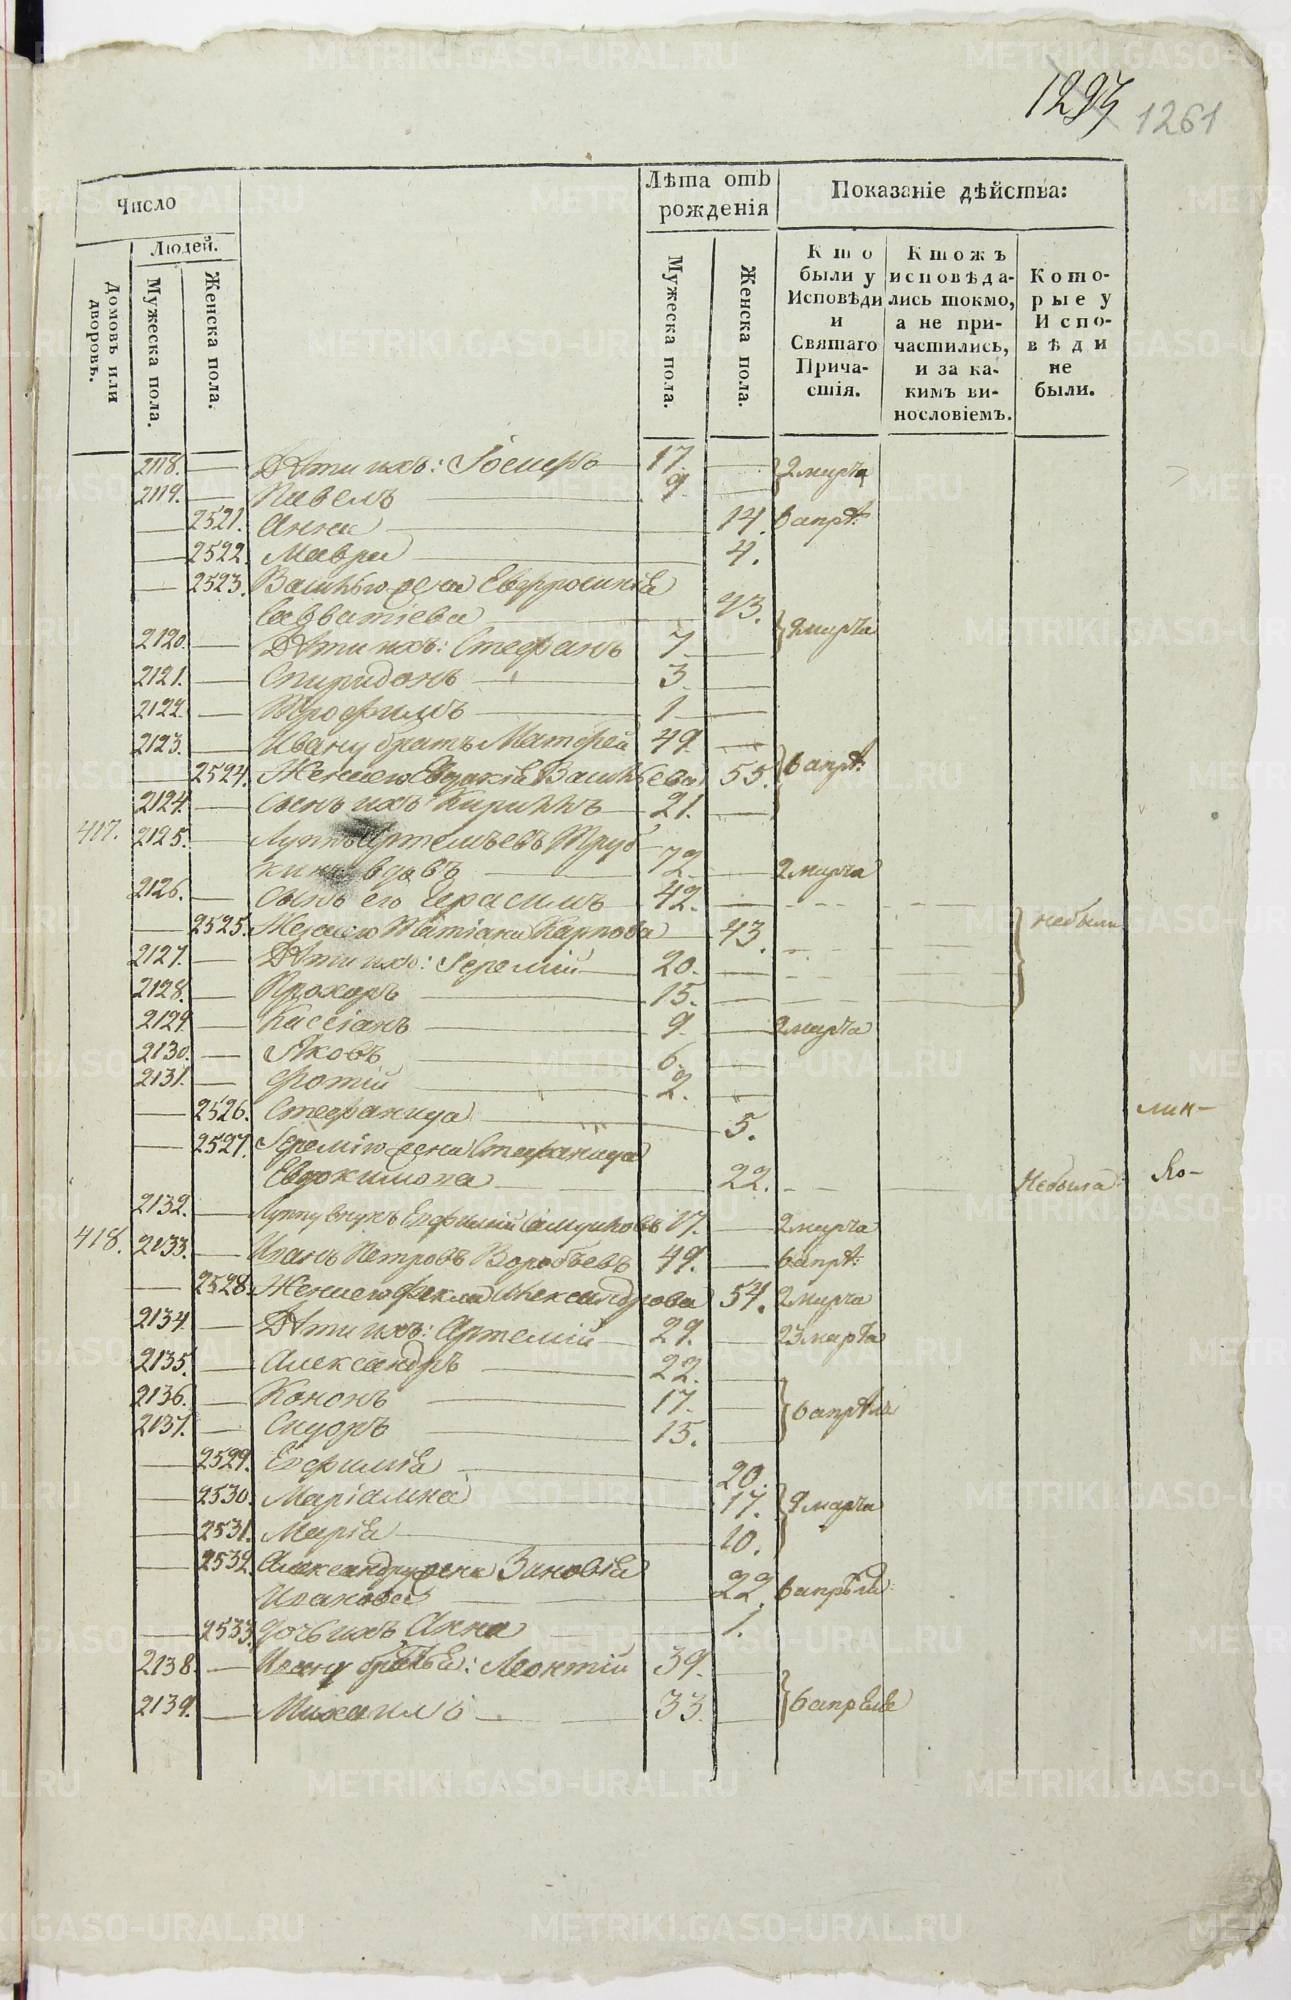 1293 1261
Число
Людей.
Домовъ или дворовъ.
Мужеска пола.
Женска пола.
Лѣта отъ рожденія
Мужеска пола.
Женска пола.
Показаніе дѣйства:
Кто были у Исповѣди и Святаго Причастія.
Ктожъ исповѣдались токмо, а не причастились, и за какимъ винословіемъ.
Которые у Исповѣди не были.
2118. — Дѣти ихъ: Іосифъ 17 — 2 марта
2119. — Павелъ 9 —
— 2521. Анна — 14. 6 апрѣ:
— 2522. Мавра 4.
— 2523. Василью жена Евфросинія
Савватіева 23.
2120. — Дѣти ихъ: Стефанъ 7 — 2 марта
2121. — Спиридонъ — 3 —
2122. — Трофимъ — 1 —
2123. — Ивану братъ Матфей 49. —
— 2524. Жена его Евдокія Васильева 55. 6 апрѣ:
2124. — Сынъ ихъ Кириллъ 21. —
417. 2125. — Луппъ Артемьевъ Труб
кинъ вдовъ 72. — 2 марта
2126. — Сынъ его Герасимъ 42. —
— 2525. Жена его Татіана Карпова 43. небыли
2127. — Дѣти ихъ: Іеремій 20. —
2128. — Прохоръ 15. —
2129. — Кассіанъ 9. — 2 марта
2130. — Яковъ 6. —
2131. — Фотій 2. —
— 2526. Стефанида 5.
— 2527. Іеремію жена Стефанида
Евдокимова 22. — Небыла
2132. — Луппу внукъ Евфимій 17. — 2 марта
418. 2133. — Иванъ Петровъ Воробьевъ 49. — 6 апрѣ:
— 2528. Жена его Фекла Александрова 54. 2 марта
2134. — Дѣти ихъ: Артемій 29. — 23 марта
2135. — Александръ 22. —
2136. — Кононъ 17. — 6 апрѣля
2137. — Сидоръ 15. —
— 2529. Евфимія 20.
— 2530. Маріамна 17. 2 марта
— 2531. Марія 10.
— 2532. Александру жена Зиновія
Иванова 22. 6 апрѣля
— 2533. Дочь ихъ Анна 1.
2138. — Ивану братья: Леонтій 39. —
2139. — Михаилъ 33. — 6 апреля